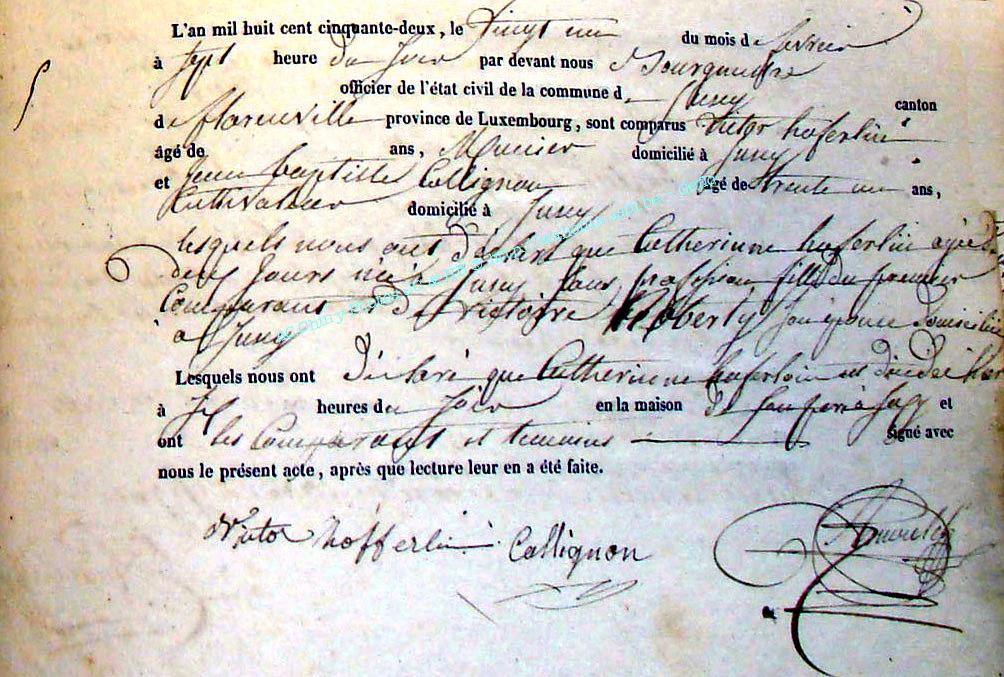 L'an mil huit cent cinquante-deux, le vingt un du mois de fevrier
à sept heure du soir par devant nous Bourgmestre
officier de l'état civil de la commune d Jusey canton
de florenville province de Luxembourg, sont comparus Victor hoferlin
âgé de ans, domicilié à Jusey
et Jean baptiste Collignon âgé de trente un ans,
Cultivateur domicilié à Jusey
lesquels nous ont déclaré que Catherinne hoferlin agée de
deux Jours née à Jusey sans profession fille du premier
Comparant et de Victoire Roberty son epouse Domicilié
à Jusey
Lesquels nous ont déclaré que Catherinne hoferlin est décédée hier
à heures du soir en la maison de son pere à Jusey et
ont les Comparants et temoins signé avec
nous le présent acte, après que lecture leur en a été faite.
Victor hofferlin Collignon